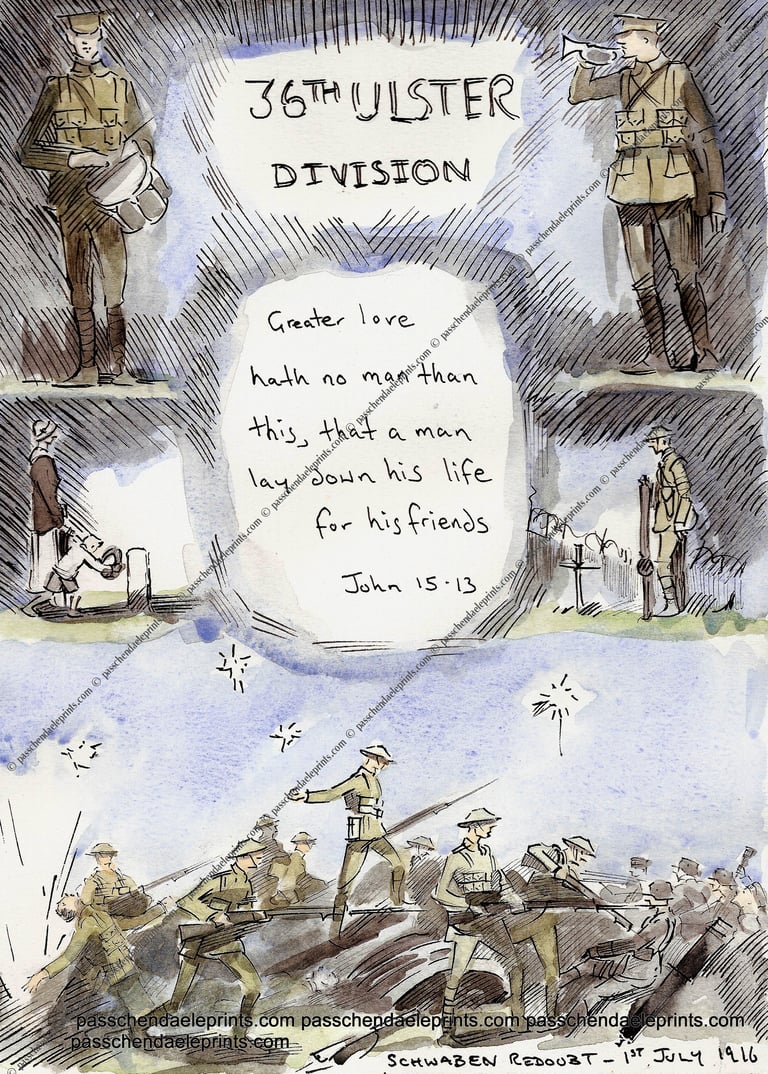 36TH ULSTER
DIVISION
Greater love
hath no man than
this, that a man
lay down his life
for his friends
John 15.13
© passchendaeleprints.com © passchendaeleprints.com © passchendaeleprints.com
passchendaeleprints.com passchendaeleprints.com passchendaeleprints.com
passchendaeleprints.com
SCHWABEN REDOUBT - 1ST JULY 1916